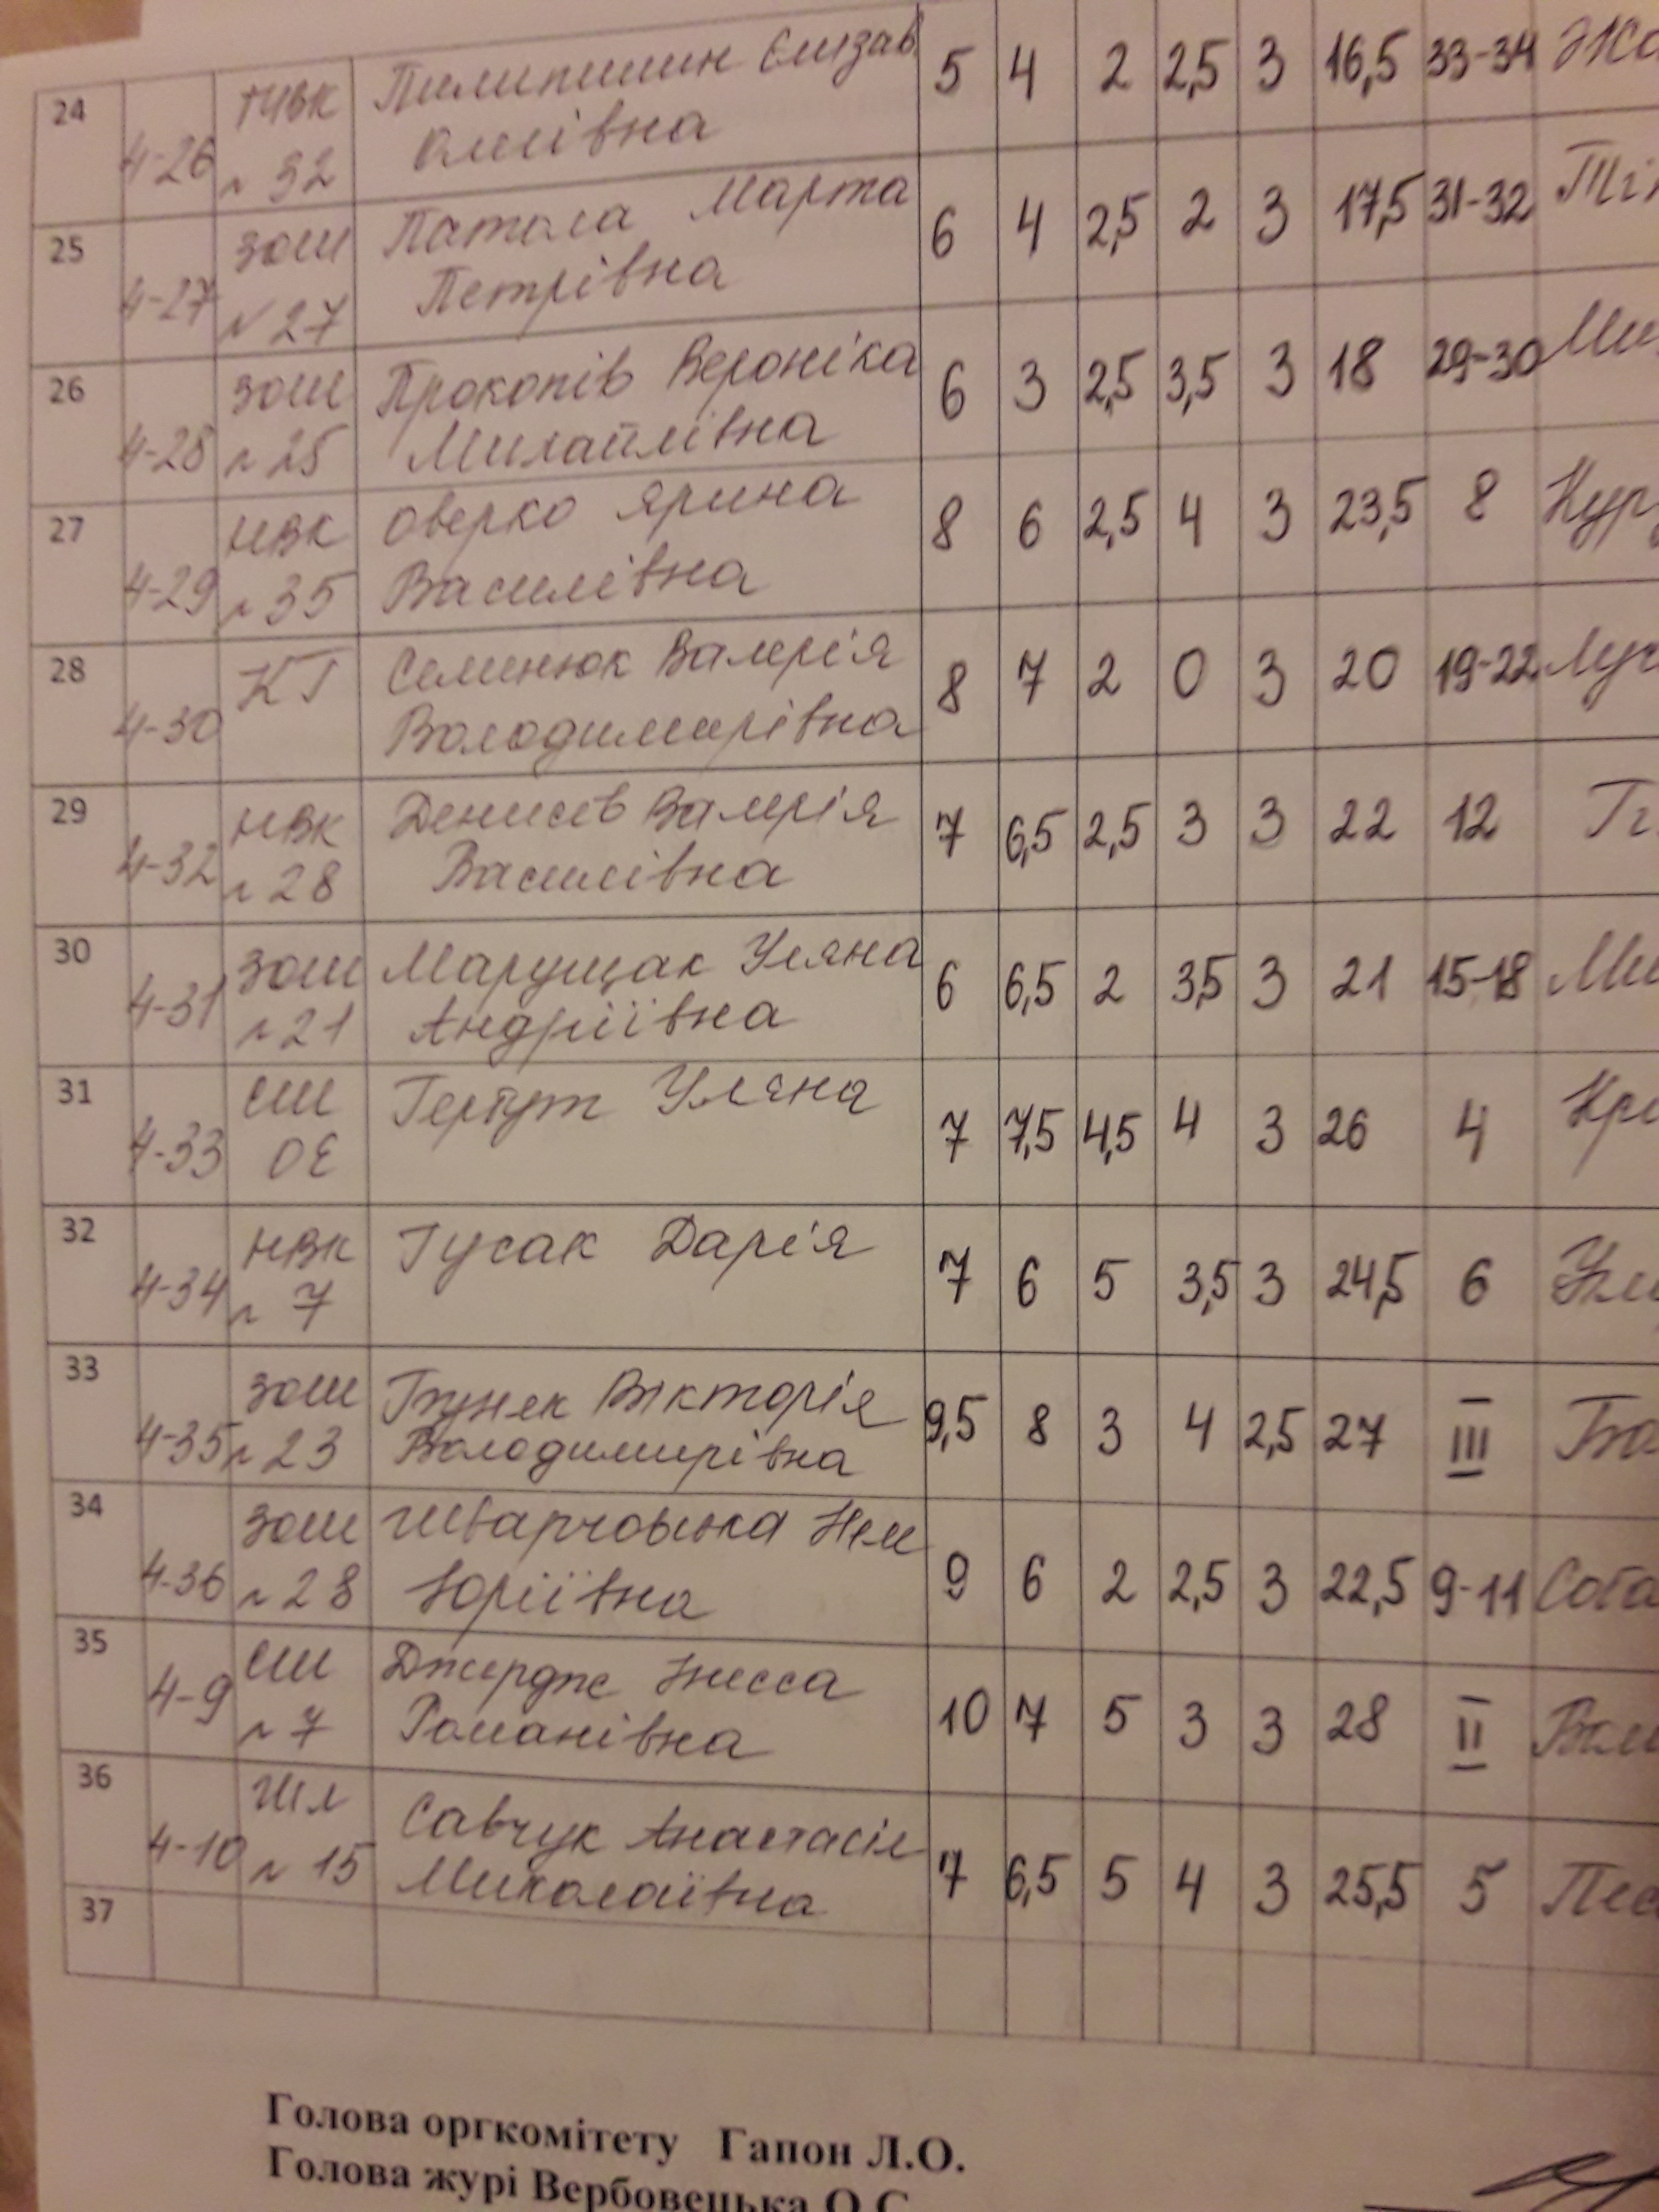 24 4-26 ТЧВК № 32 Пилипишин Єлизав 5 4 2 2,5 3 16,5 33-34
Оліївна
25 4-27 ЗОШ № 27 Патола Марта 6 4 2,5 2 3 17,5 31-32
Петрівна
26 4-28 ЗОШ № 25 Прокопів Вероніка 6 3 2,5 3,5 3 18 29-30
Михайлівна
27 4-29 НВК № 35 Оверко Ярина 8 6 2,5 4 3 23,5 8
Василівна
28 4-30 КГ Семенюк Валерія 8 7 2 0 3 20 19-22
Володимирівна
29 4-32 НВК № 28 Денисів Валерія 7 6,5 2,5 3 3 22 12
Василівна
30 4-31 ЗОШ № 21 Марущак Уляна 6 6,5 2 3,5 3 21 15-18
Андріївна
31 4-33 СШ ОЕ Уляна 7 7,5 4,5 4 3 26 4
32 4-34 НВК № 7 Гусак Дарія 7 6 5 3,5 3 24,5 6
33 4-35 ЗОШ № 23 Вікторія 9,5 8 3 4 2,5 27 III
Володимирівна
34 4-36 ЗОШ № 28 9 6 2 2,5 3 22,5 9-11
Юріївна
35 4-9 СШ № 7 10 7 5 3 3 28 II
Романівна
36 4-10 № 15 Савчук Анастасія 7 6,5 5 4 3 25,5 5
Миколаївна
37
Голова оргкомітету Гапон Л.О.
Голова журі Вербовецька О.С.